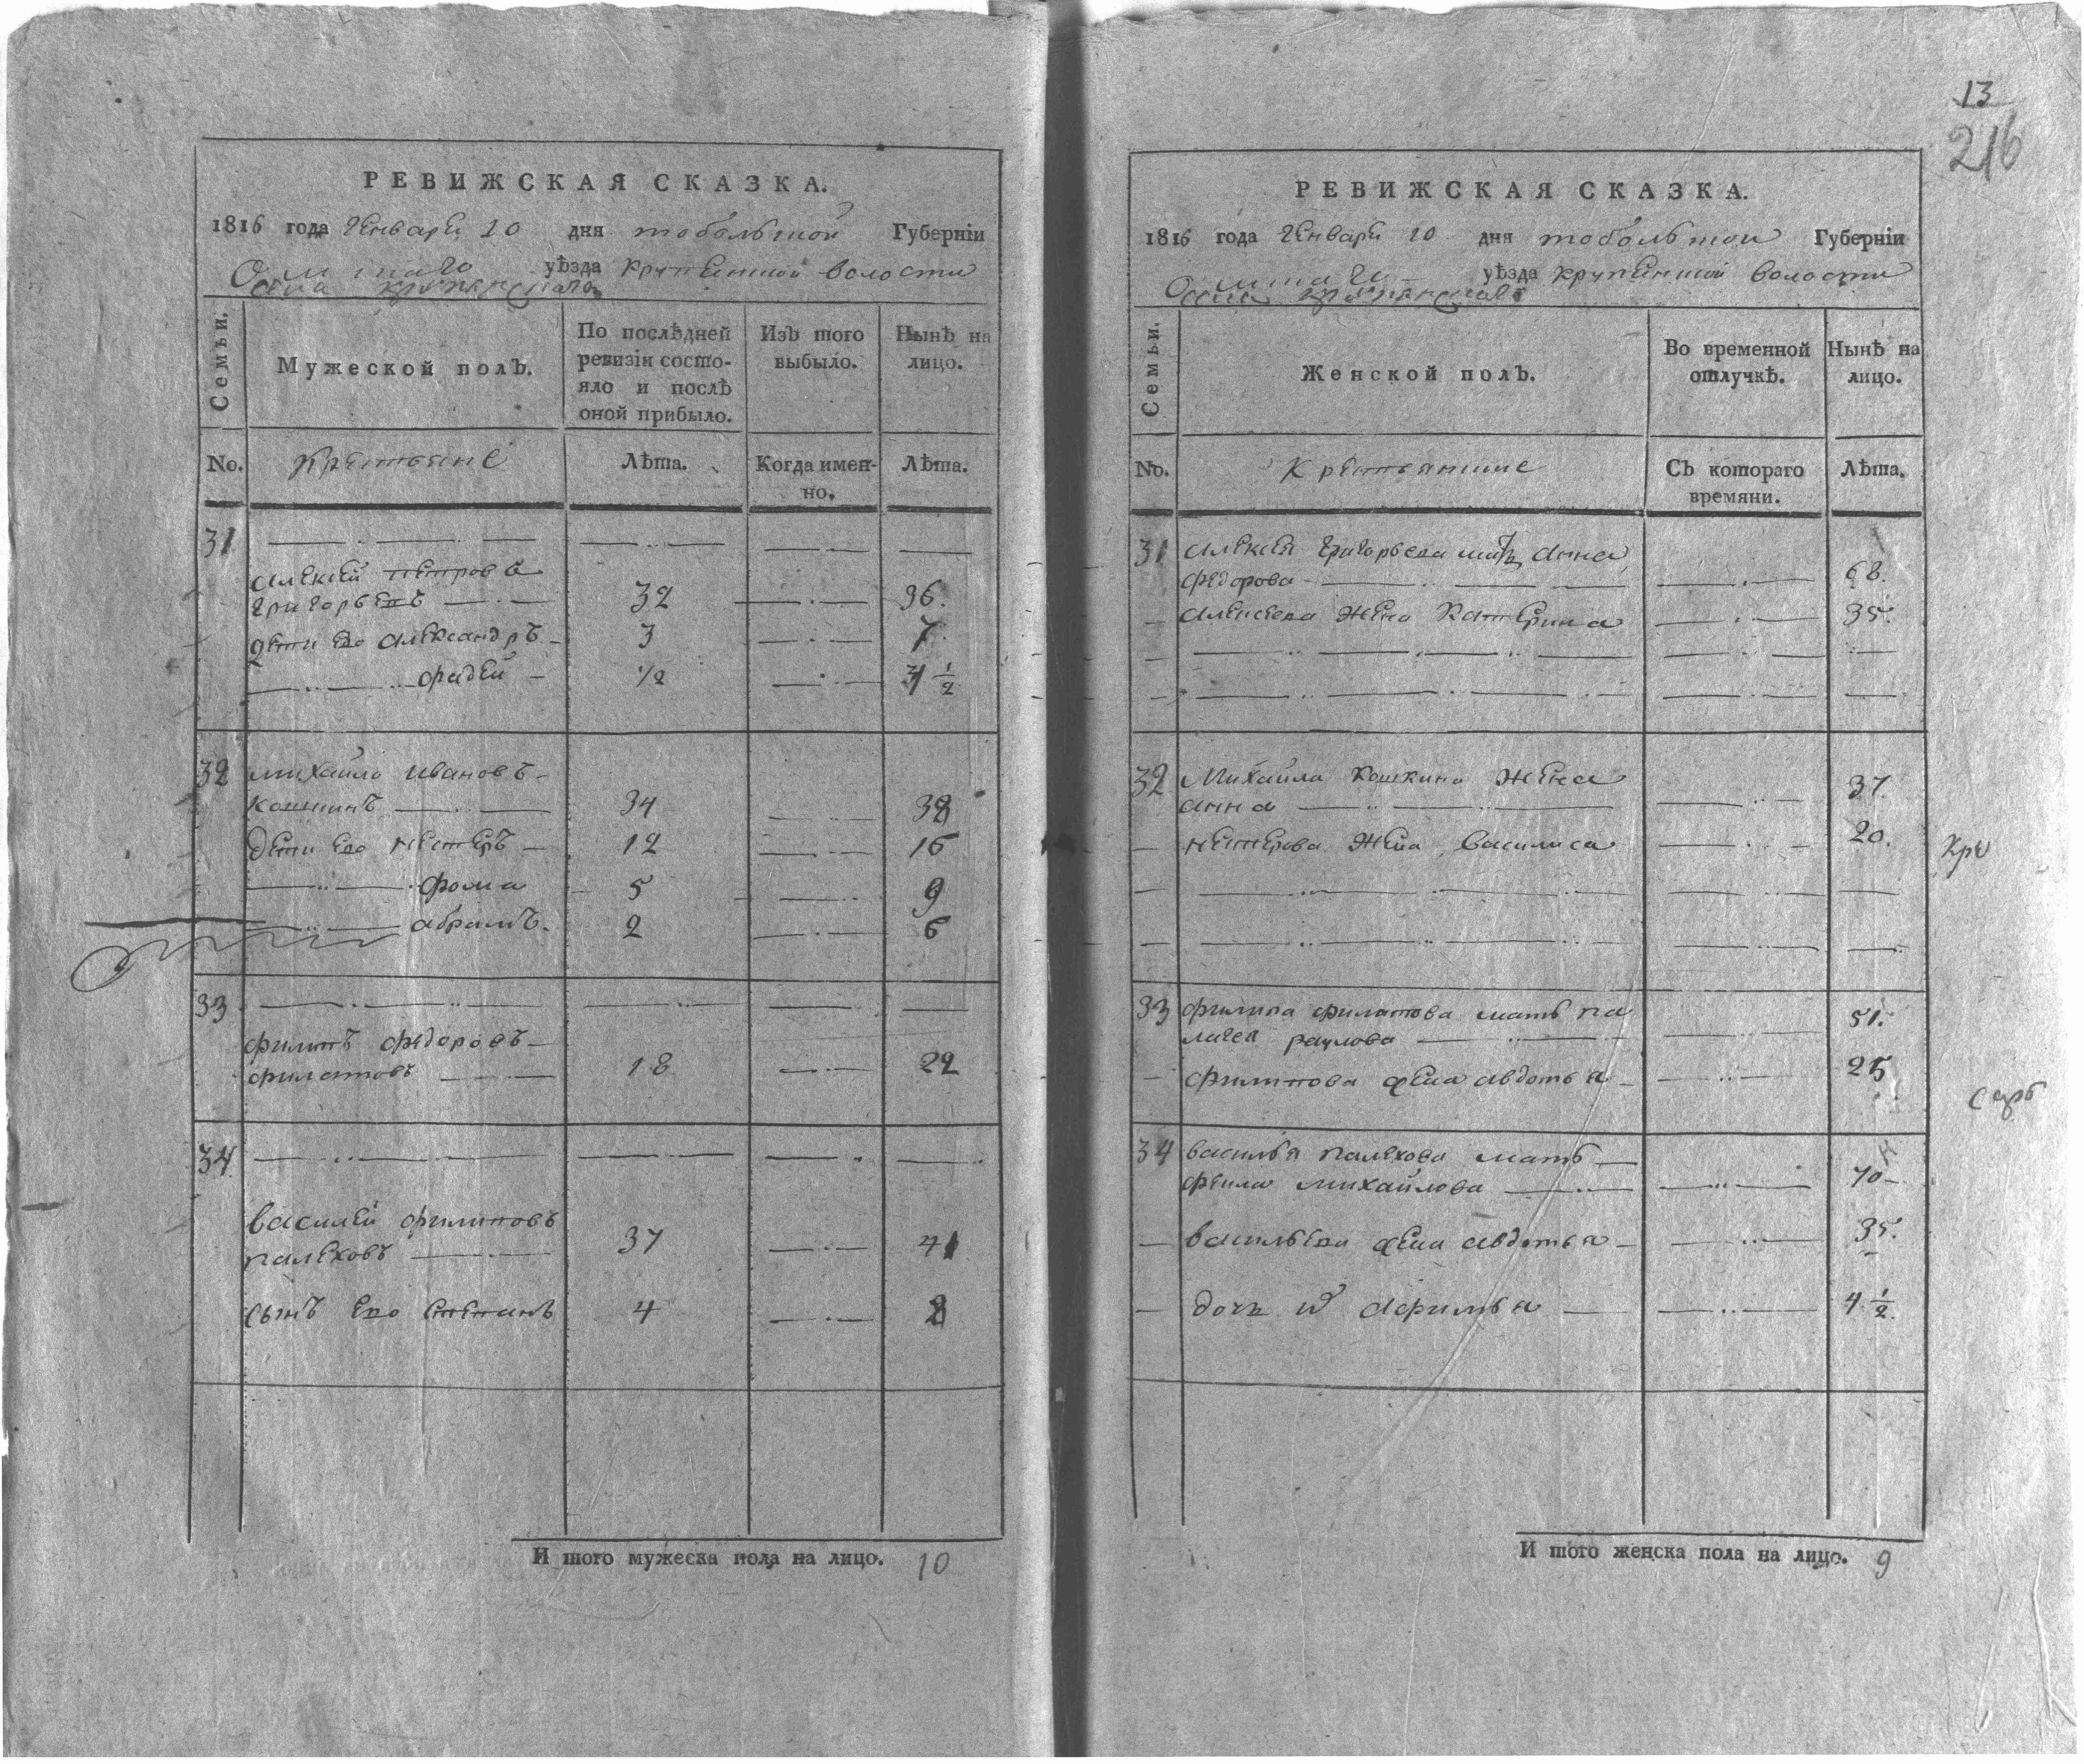 РЕВИЖСКАЯ СКАЗКА.
1816 года Генваря 10 дня тобольской Губерніи
Омскаго уѣзда крупенской волости
села крупянскаго
Семьи.
Мужеской полъ.
По послѣдней ревизіи состо-
яло и послѣ
оной прибыло.
Изъ того
выбыло.
Нынѣ на
лицо.
No.
Крестьяне
Лѣта.
Когда имен-
но.
Лѣта.
31
алексей петровъ
григорьевъ 32 36.
дети ево александръ 3 7.
фадей 1/2 4 1/2
32 михайло ивановъ
кошкинъ 34 38
дети ево нестеръ 12 16
фома 5 9
абрамъ. 2 6
33
филипъ федоровъ
филатовъ 18 22
34
василей филиповъ
палеховъ 37 41
сынъ ево степанъ 4 8
И того мужеска пола на лицо. 10
13
216
РЕВИЖСКАЯ СКАЗКА.
1816 года Генваря 10 дня тобольской Губерніи
Омскаго уѣзда крупенской волости
села крупянскаго
Семьи.
Женской полъ.
Во временной
отлучкѣ.
Нынѣ на
лицо.
No.
Крестьянские
Съ котораго
времяни.
Лѣта.
31 алексея григорьева мать анна
федорова 68.
алексеева жена катерина 35.
32 Михаила кошкина жена
анна 37.
нестерова жена василиса 20.
33 филипа филатова мать па
лагея 51.
филипова жена авдотья 25
34 василья палехова мать
фекла михайлова 70
васильева жена авдотья 35.
дочь афимья 4 1/2.
И того женска пола на лицо. 9